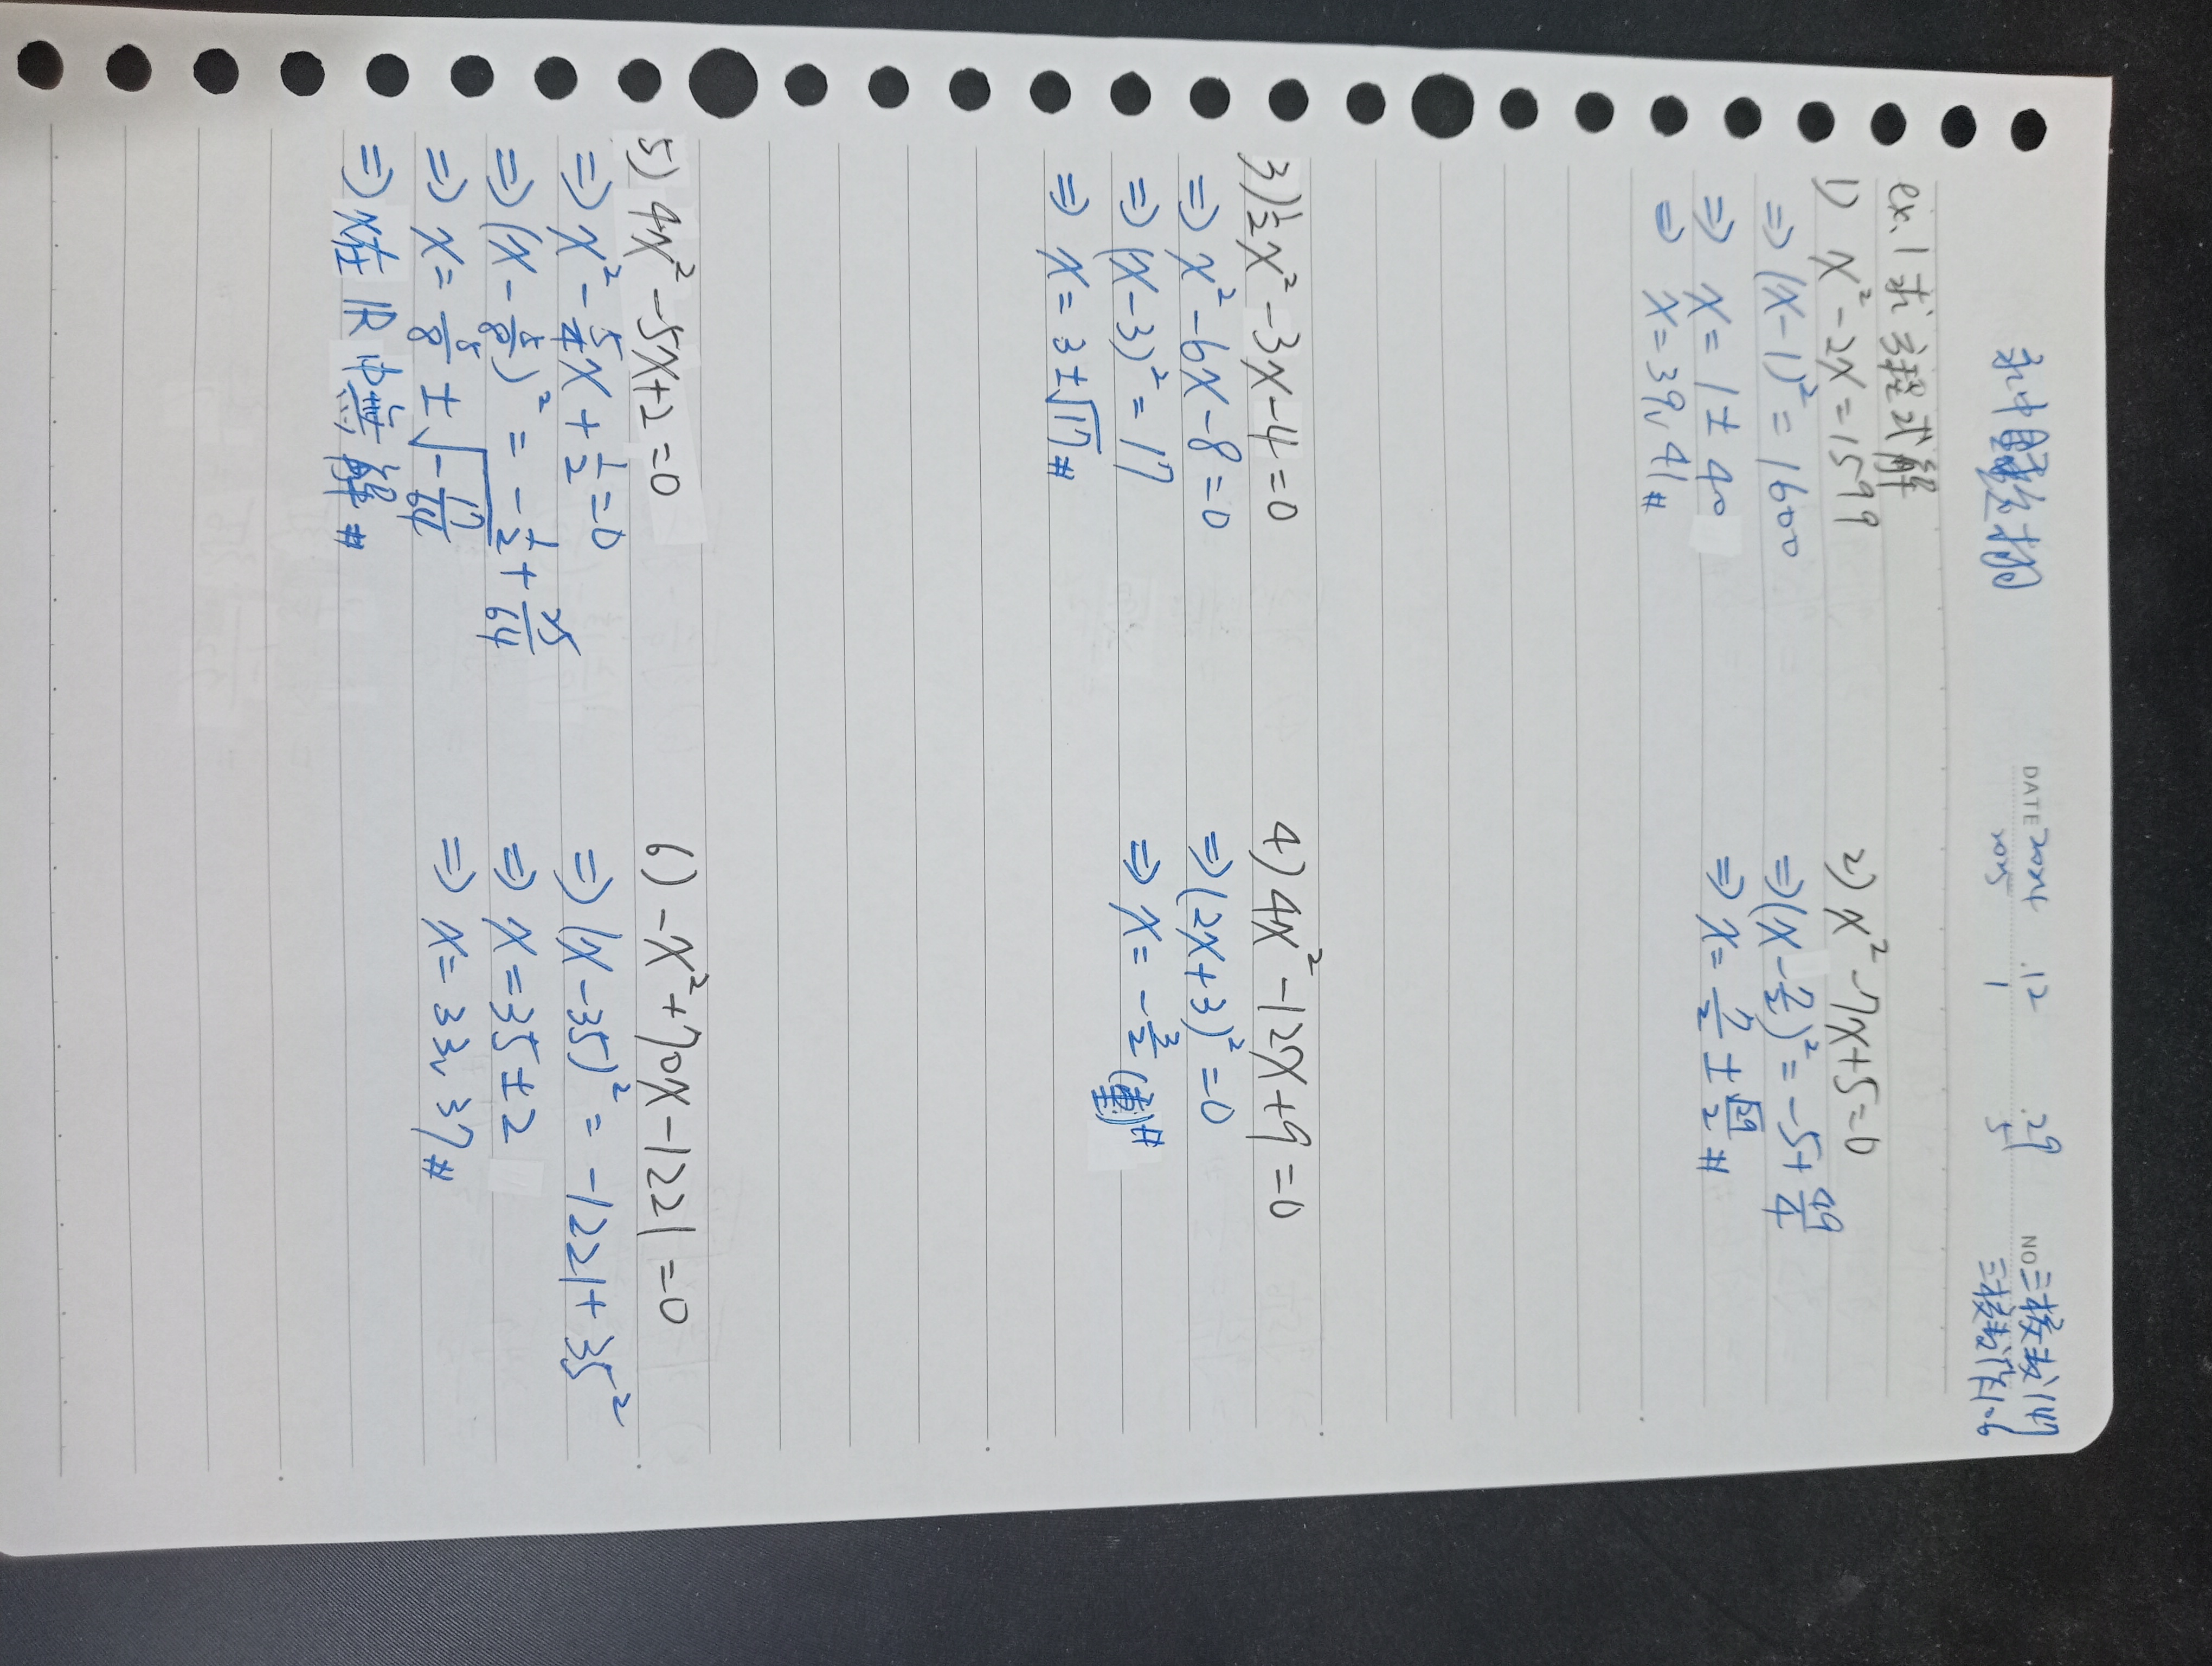 永中
DATE 2024 .12 .29
2025 1 5
NO 三校教147
三校教作106
ex.1 求方程式解
1) x²-2x=1599
⇒ (x-1)²=1600
⇒ x=1±40
⇒ x=39∨41#
2) x²-7x+5=0
⇒(x-7/2)²=-5+49/4
⇒ x=7/2±√29/2#
3) 1/2x²-3x-4=0
⇒ x²-6x-8=0
⇒ (x-3)²=17
⇒ x=3±√17#
4) 4x²-12x+9=0
⇒(2x+3)²=0
⇒ x=-3/2(重)#
5) 4x²-5x+2=0
⇒ x²-5/4x+1/2=0
⇒ (x-5/8)²=-1/2+25/64
⇒ x=5/8±√-17/64
⇒ x在ℝ中無解#
6) -x²+70x-1221=0
⇒ (x-35)²=-1221+35²
⇒ x=35±2
⇒ x=33∨37#